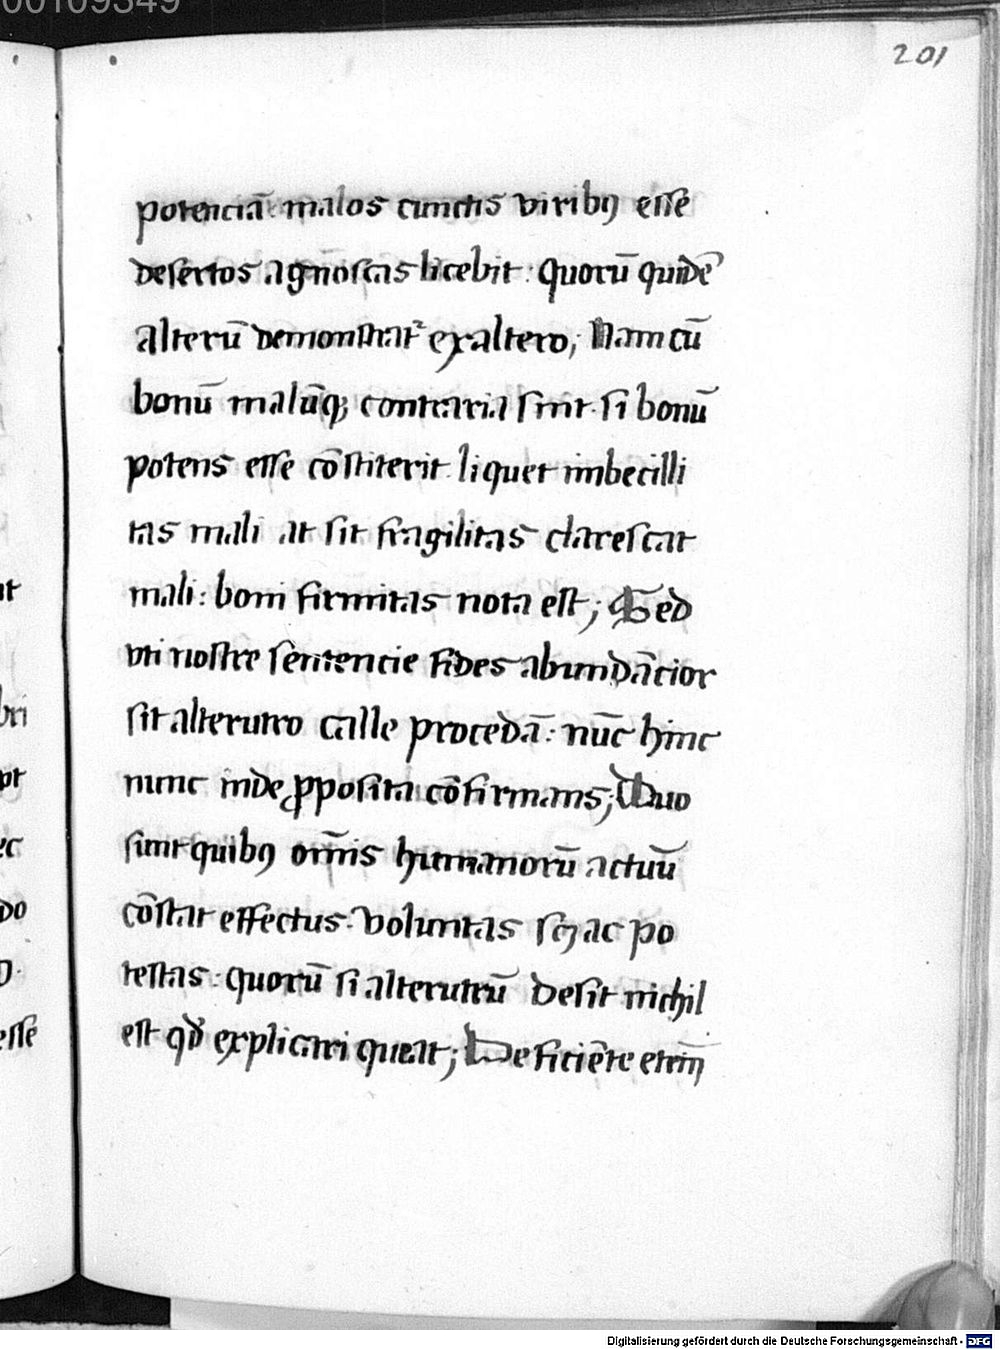 00109349
201
potenciā: malos cunctis viribꝰ esse
desertos agnoscas licebit: quorū quidē
alterū demonstrat᷑ ex altero; Nam cū
bonū malūqꝫ contraria sint. si bonū
potens esse cōstiterit. liquet imbecilli
tas mali at sit fragilitas clarescat
mali: boni firmitas nota est; Sed
vti nostre sentencie fides abundācior
sit alterutro calle procedā: nūc hinc
nunc inde ꝓposita cōfirmans; Duo
sunt quibꝰ om̄is humanorū actuū
cōstat effectus. voluntas scꝫ ac po
testas: quorū si alterutrū desit nichil
est qđ explicari queat; Deficiēte etem̄
at
bri
pt
ec
do
esse
Digitalisierung gefördert durch die Deutsche Forschungsgemeinschaft - DFG